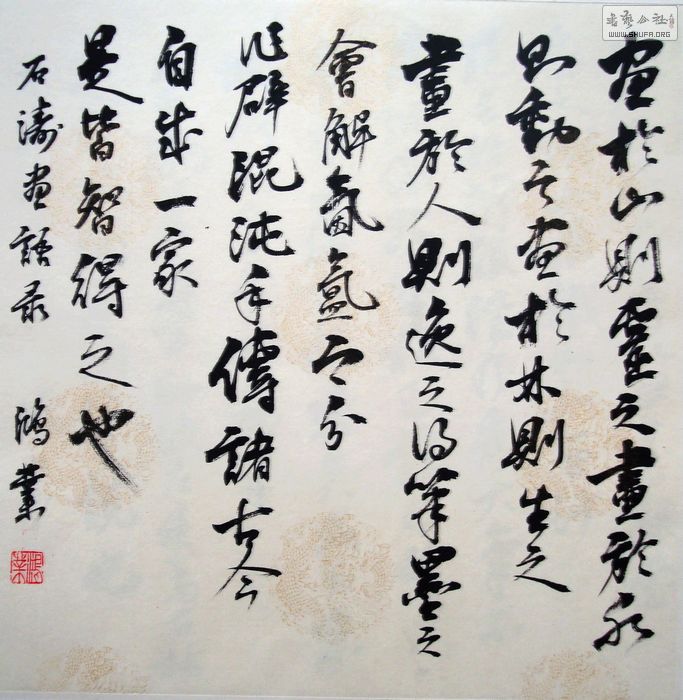 画於山则靈之畫於水
则動之画於林则生之
畫於人则逸之得筆墨之
會解氤氲之分
作辟混沌手傳諸古今
自成一家
是皆智得之也
石濤画語录
鴻業
鴻業
書藝公社
WWW.SHUFA.ORG